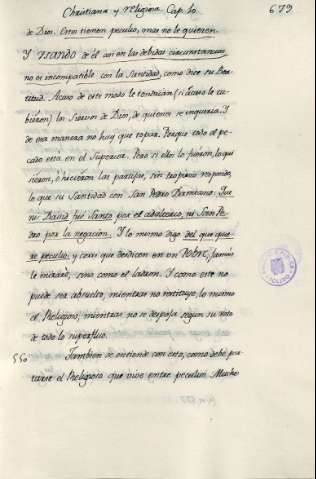 Christiana y religiosa Cap. 10 679
de Dios. Otros tienen peculio, mas no le quieren.
Y usando de él con las debidas circunstancias,
no es incompatible con la Santidad, como dice su Bea-
titud. Acaso de este modo le tendrian (si acaso le tu-
bieron) los Siervos de Dios, de quienes se inquiria. Y
de esa manera no hay que topar. Porque todo el pe-
cado está en el Superior. Pero si ellos lo
ò hicieron las partijas, sin respondo,
lo que su Santidad con San Pedro Damiano: Que
ni David fue Santo por el adulterio, ni San Pe-
dro por la negacion. Y lo mismo digo del que quie-
re peculio: y creer que desdicen en un POBRE, jamás
le mirarè, sino como el ladron. Y como este no
puede ser absuelto, mientras no restituye, lo mismo
el Religioso, mientras no se despoja segun su voto
de todo lo superfluo.
550 Tambien se entiende con esto, como debe por-
tarse el Religioso que vive entre peculios. Mucho